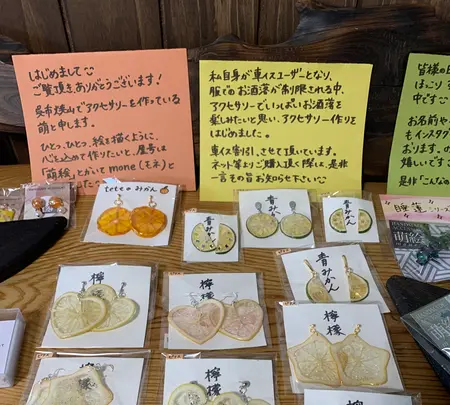 はじめまして
ご覧頂きありがとうございます!
呉市焼山でアクセサリーを作っている
萌と申します。
ひとつ、ひとつ、絵を描くように、
心を込めて作りたいと、屋号は
「萌絵」とかいてmone(モネ)と
私自身が車イスユーザーとなり、
服でのお洒落が制限される中、
アクセサリーでいっぱいお洒落を
楽しみたいと思い、アクセサリー作りを
はじめました。
車イス割引、させて頂いています。
ネット等よりご購入頂く際は、是非
一言その旨お知らせ下さい
皆様の
中です
お名前や
もインスタグ
おります。
嬉しいです
是非「こんな
teteのみかん
青みかん
青みかん
青みかん
檸檬
檸檬
檸檬
檸檬
檸檬
萌絵